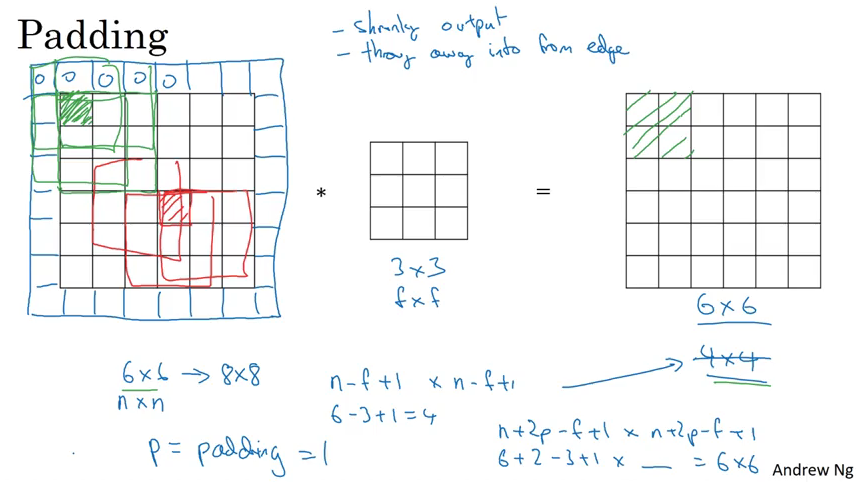 Padding
- shrinky output
- throw away info from edge
0 0 0 0 0
*
=
3 x 3
f x f
6 x 6
4 x 4
6 x 6 → 8 x 8
n x n
n-f+1 x n-f+1
6-3+1=4
p = padding = 1
n+2p-f+1 x n+2p-f+1
6+2-3+1 x __ = 6x6
Andrew Ng